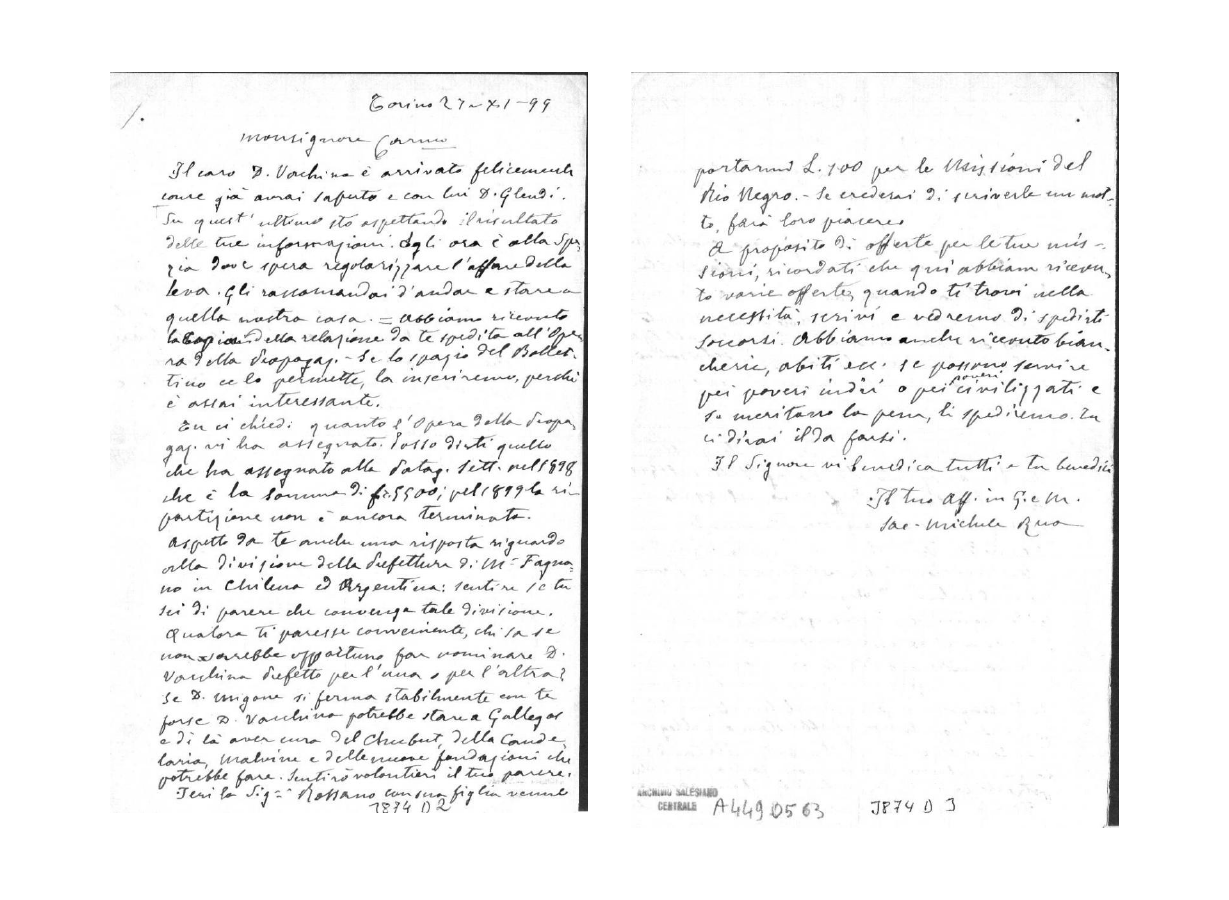 Torino 27-XI-99
Monsignore Carmo
Il caro D. Vacchina è arrivato felicemente
come già avrai saputo e con lui D. Glendi.
Su quest' ultimo sto aspettando il risultato
delle tue informazioni. Egli ora è alla Spe,
zia dove spera regolarizzare l'affare della
leva. Gli raccomandai d'andar e stare a
quella nostra casa. = Abbiamo ricevuto
la copia della relazione da te spedita all'Ope,
ra della Propagaz. - Se lo spazio del Bollet-
tino ce lo permette, la inseriremo, perchè
è assai interessante.
Tu ci chiedi quanto l'Opera della Propa,
gaz. vi ha assegnato. Posso dirti quello
che ha assegnato alla Patag. Sett. nel 1898
che è la somma di f. 5500; pel 1899 la ri-
partizione non è ancora terminata.
Aspetto da te anche una risposta riguardo
alla divisione della Prefettura di Mr Fagna,
no in Chilena ed Argentina: sentire se tu
sei di parere che convenga tale divisione.
Qualora ti paresse conveniente, chi sa se
non sarebbe opportuno far nominare D.
Vacchina Prefetto per l'una o per l'altra?
Se D. Migone si ferma stabilmente con te
forse D. Vacchina potrebbe stare a Gallegos
e di là aver cura del Chubut, della Cande,
laria, Malvine e delle nuove fondazioni che
potrebbe fare. Sentirò volontieri il tuo parere.
Ieri la Sig.ra Rossano con sua figlia venne
1874 D 2
portarmi L. 100 per le Missioni del
Rio Negro. - Se crederai di scriverle un mot-
to, farà loro piacere.
A proposito di offerte per le tue mis-
sioni, ricordati che qui abbiam ricevu,
to varie offerte, quando ti trovi nella
necessità, scrivi e vedremo di spedirti
soccorsi. Abbiamo anche ricevuto bian-
cherie, abiti ecc. se possono servire
pei poveri indii o pei poveri civilizzati e
se meritano la pena, li spediremo. Tu
ci dirai il da farsi.
Il Signore vi benedica tutti e tu benedici
Il tuo Aff. in G. e M.
Sac. Michele Rua
ARCHIVIO SALESIANO
CENTRALE
A4490563
1874 D 3